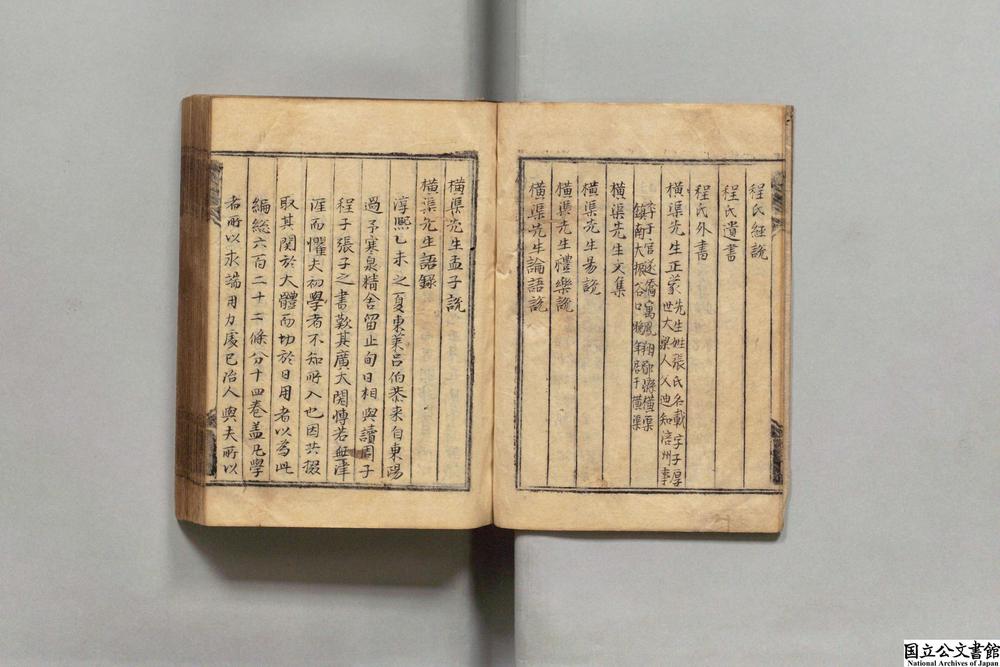 程氏經說
程氏遺書
程氏外書
橫渠先生正蒙
先生姓張氏名載字子厚
世大梁人父迪知涪州事
卒于官遂僑寓鳳翔郿縣橫渠
鎮南大振谷口晚年居于橫渠
橫渠先生文集
橫渠先生易說
橫渠先生禮樂說
橫渠先生論語說
橫渠先生孟子說
橫渠先生語録
淳熙乙未之夏東萊呂伯恭来自東陽
過予寒泉精舍留止旬日相與讀周子
程子張子之書歎其廣大閎博若無津
涯而懼夫初學者不知所入也因共掇
取其關於大體而切於日用者以為此
編総六百二十二條分十四卷盖凡學
者所以求端用力處己治人與夫所以
国立公文書館
National Archives of Japan